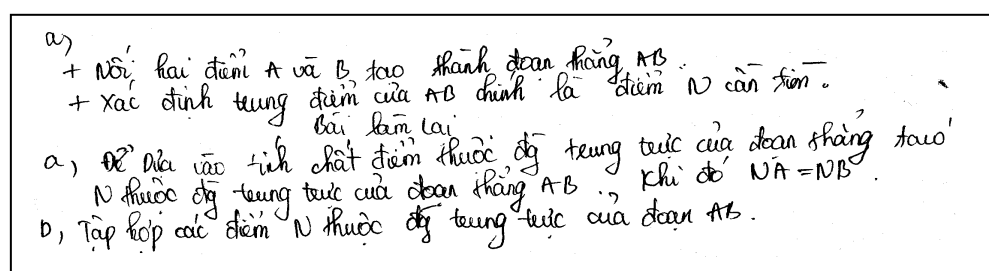 a)
+ Nối hai điểm A và B tạo thành đoạn thẳng AB.
+ Xác định trung điểm của AB chính là điểm N cần tìm.
Bài làm lại
a, Để Dựa vào tính chất điểm thuộc đg trung trực của đoạn thẳng ta có
N thuộc đg trung trực của đoạn thẳng AB., khi đó NA = NB.
b, Tập hợp các điểm N thuộc đg trung trực của đoạn AB.